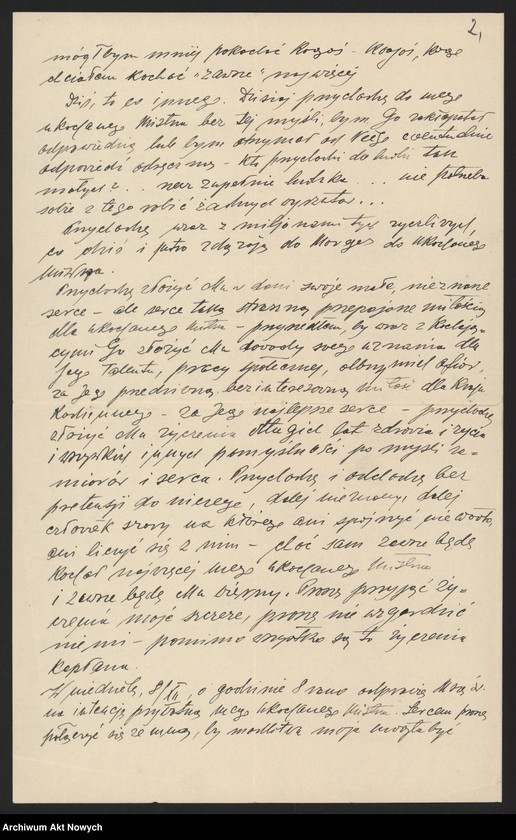 2,
mógłbym mniej pokochać Kogoś - Kogoś, kogo
chciałem kochać "zawsze" najwięcej
Dziś, to co innego. Dzisiaj przychodzę do mego
ukochanego Mistrza bez tej myśli, bym Go zakłopotał
odpowiedzią lub bym otrzymał od Niego ewentualnie
odpowiedź odręczną - kto przychodzi do ludzi tak
małych? .. rzecz zupełnie ludzka ... nie potrzeba
sobie z tego robić żadnych wyrzutów ...
Przychodzę wraz z miljonami tych życzliwych,
co dziś i jutro zdążają do Morges do ukochanego
Mistrza.
Przychodzę złożyć Mu w dani swoje małe, nieznane
serce - ale serce takie straszną przepojone miłością
dla ukochanego Mistrza - przyszedłem, by wraz z Kochają-
cymi Go złożyć Mu dowody swego uznania dla
Jego Talentu, pracy społecznej, olbrzymich ofiar,
za Jego przedziwną bezinteresowną miłość dla Kraju
Rodzinnego - za Jego najlepsze serce - przychodzę
złożyć Mu życzenia długich lat zdrowia i życia
i wszystkich innych pomyślności po myśli za-
miarów i serca. Przychodzę i odchodzę bez
pretensji do niczego, dalej nieznany, dalej
człowiek szary na którego ani spojrzyć nie warto,
ani liczyć się z nim - choć sam zawsze będę
Kochał najwięcej mego ukochanego Mistrza
i zawsze będę Mu wierny. Proszę przyjąć ży-
czenia moje szczere, proszę nie wzgardzić
niemi - pomimo wszystko są to życzenia
Kapłana.
W niedzielę, 8/XII, o godzinie 8 rano odprawię Mszę św.
na intencję mego ukochanego Mistrza. Sercem proszę
połączyć się ze mną, by modlitwa moja mogła być
Archiwum Akt Nowych